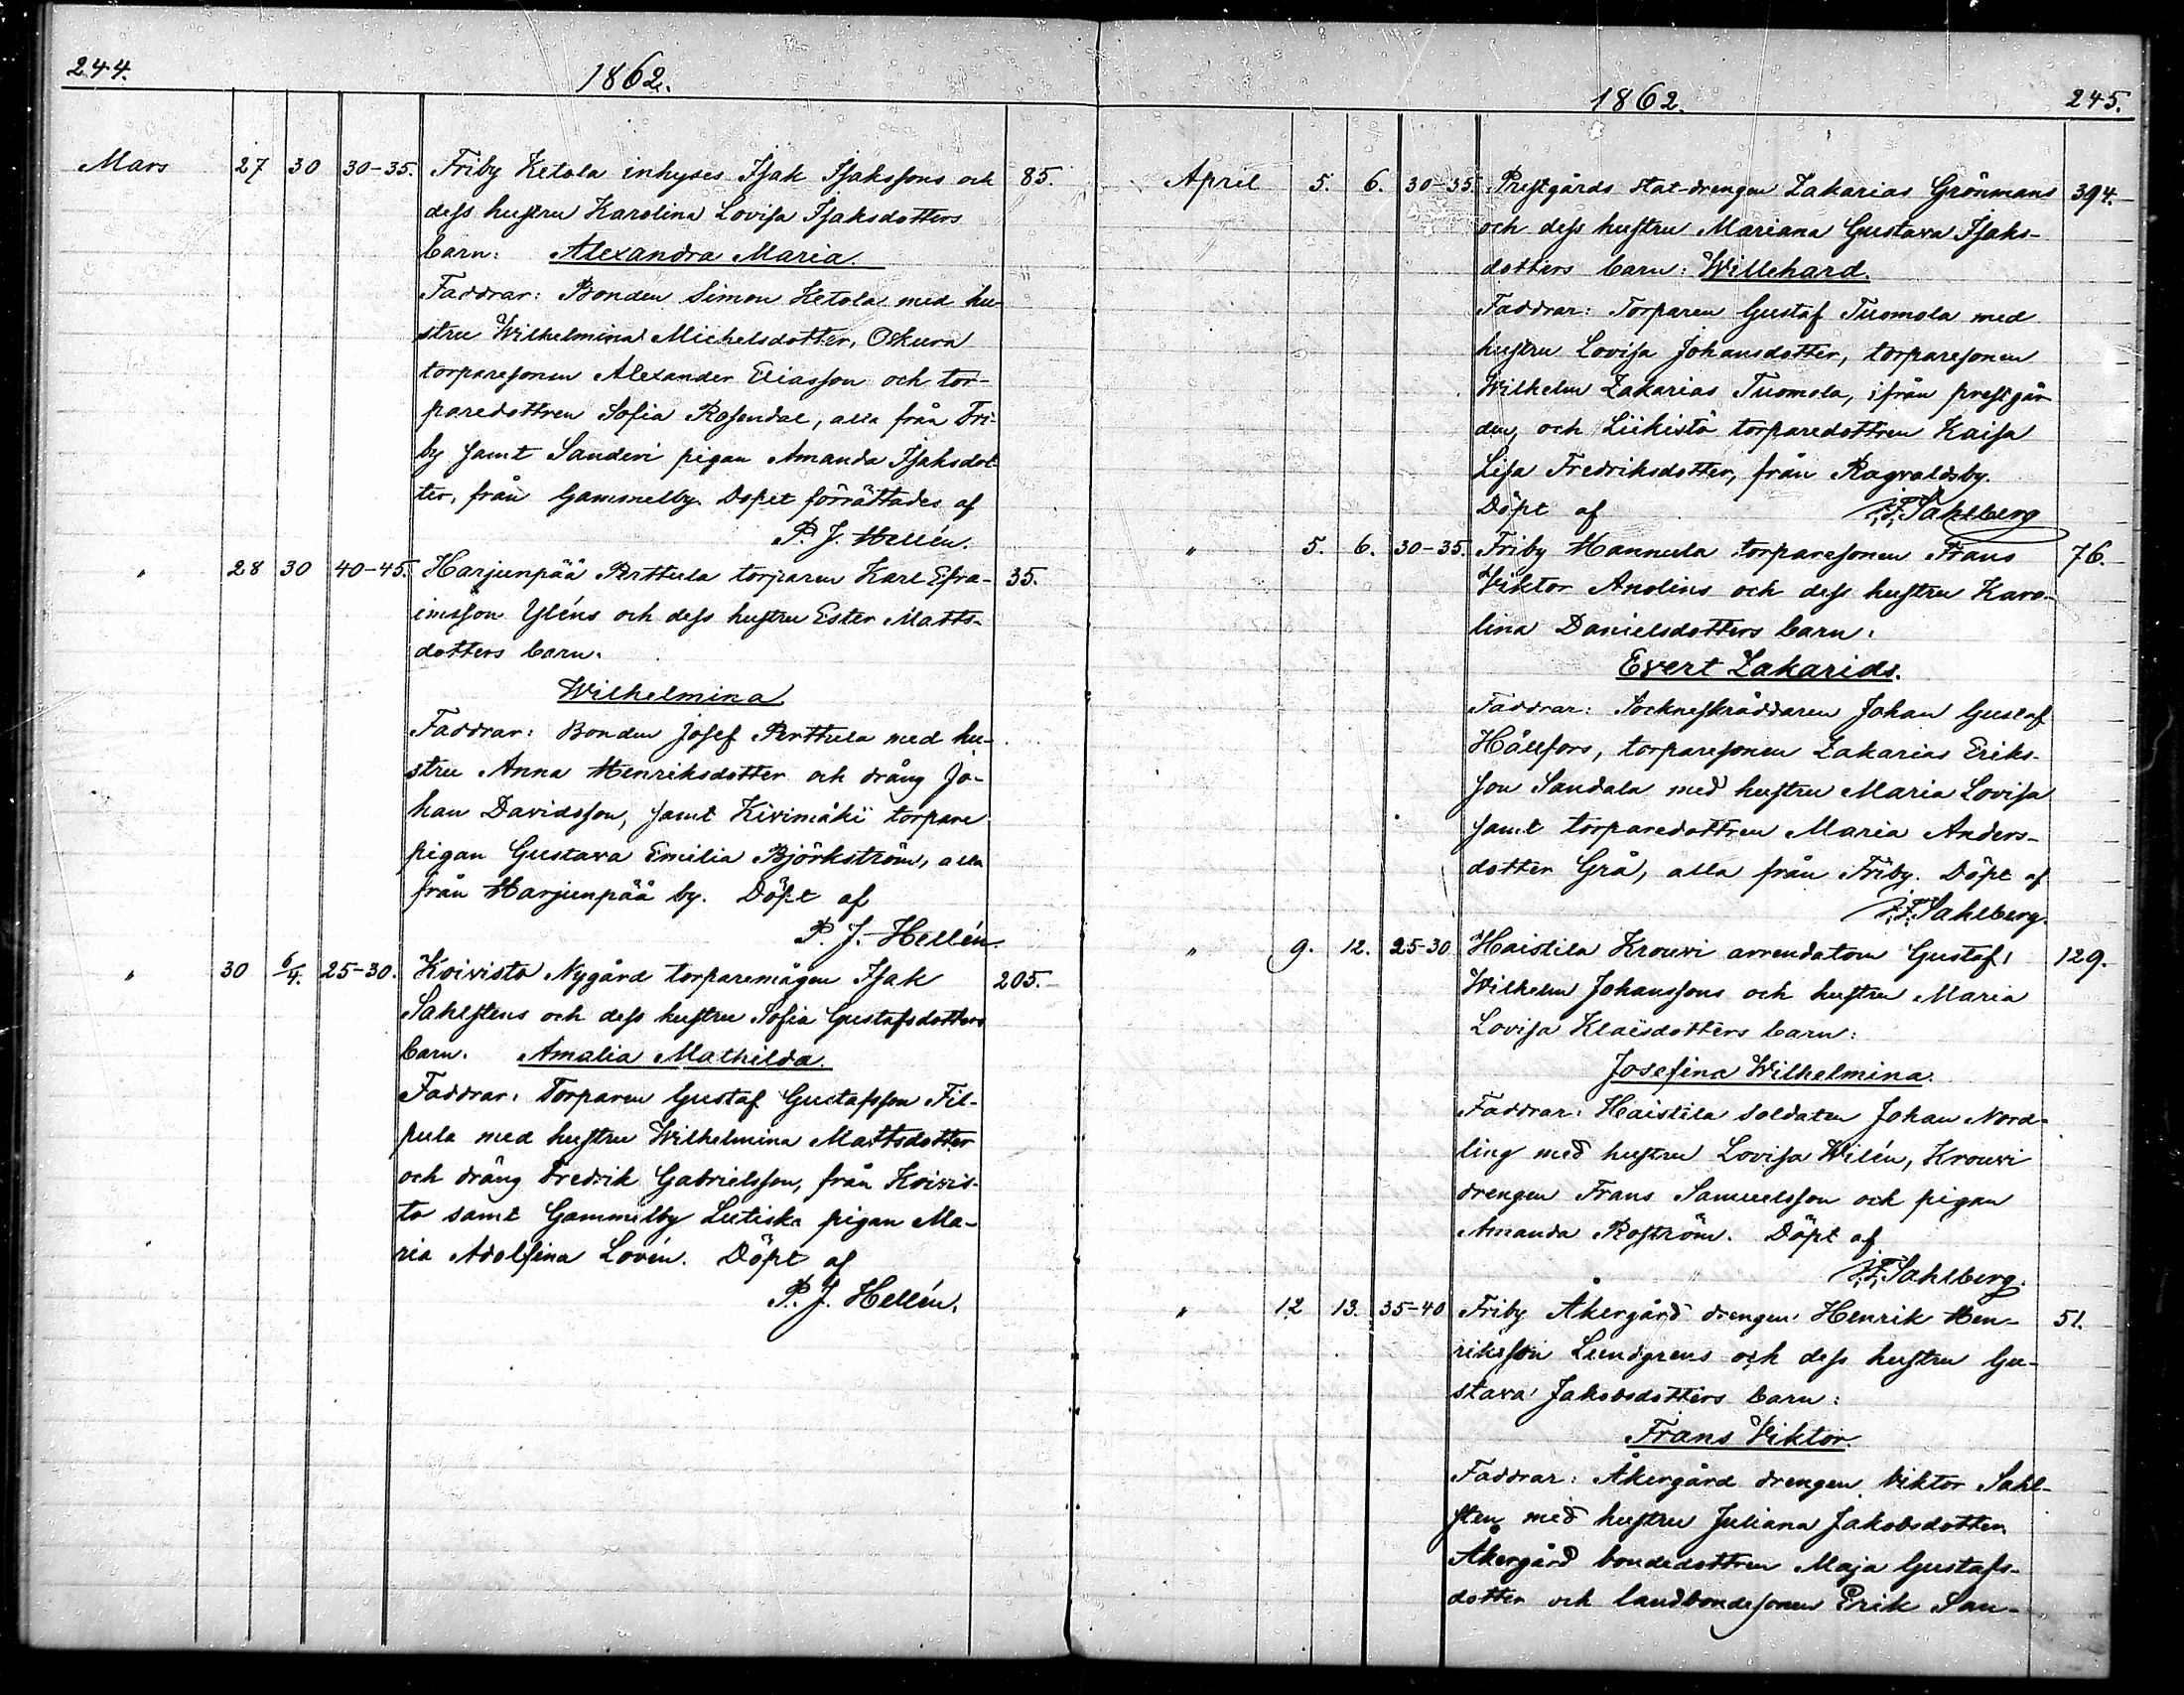 244.
1862.
Mars 27 30 30-35. Friby Ketola inhyses Isak Isakssons och 85.
dess hustru Karolina Lovisa Isaksdotters
barn: Alexandra Maria.
Faddrar: Bonden Simon Ketola med hu-
stru Wilhelmina Michelsdotter, Oskura
torparesonen Alexander Eliasson och tor-
paredottren Sofia Rosendal, alla från Fri-
by samt Sanderi pigan Amanda Isaksdot-
ter, från Gammelby. Dopet förrättades af
P. J. Hellén.
" 28 30 40-45. Harjunpää Perttula torparen Karl Efra- 35.
imsson Yléns och dess hustru Ester Matts-
dotters barn.
Wilhelmina
Faddrar: Bonden Josef Perttula med hu-
stru Anna Henriksdotter och dräng Jo-
han Davidsson, samt Kivimäki torpare
pigan Gustava Emilia Björkström, alla
från Harjunpää by. Döpt af
P. J. Hellén
" 30 6/4. 25-30. Koivisto Nygård torparemågen Isak 205.
Sahlstens och dess hustru Sofia Gustafsdotters
barn. Amalia Mathilda.
Faddrar: Torparen Gustaf Gustafsson Fil-
pula med hustru Wilhelmina Mattsdotter
och dräng Fredrik Gabrielsson, från Koivis-
to samt Gammelby Lutiska pigan Ma-
ria Adolfina Lovén. Döpt af
P. J. Hellén.
1862. 245.
April 5. 6. 30-35. Prestgårds stat-drengen Zakarias Grönmans 394.
och dess hustru Mariana Gustava Isaks-
dotters barn: Willehard.
Faddrar: Torparen Gustaf Tuomola med
hustru Lovisa Johansdotter, torparesonen
Wilhelm Zakarias Tuomola, ifrån prestgår
den, och Liikistö torparedottren Kaisa
Lisa Fredriksdotter, från Ragvaldsby.
Döpt af F. Sahlberg
" 5. 6. 30-35. Friby Hannula torparesonen Frans 76.
Viktor Anolins och dess hustru Karo-
lina Danielsdotters barn:
Evert Zakarids.
Faddrar: Sockneskräddaren Johan Gustaf
Hällfors, torparesonen Zakarias Eriks-
son Sandala med hustru Maria Lovisa
samt torparedottren Maria Anders-
dotter Grå, alla från Friby. Döpt af
F. Sahlberg.
" 9. 12. 25-30 Haistila Krouvi arrendatorn Gustaf 129.
Wilhelm Johanssons och hustru Maria
Lovisa Klaësdotters barn:
Josefina Wilhelmina.
Faddrar: Haistila soldaten Johan Nord-
ling med hustru Lovisa Wilén, Krouvi
drengen Frans Samuelsson och pigan
Amanda Roström. Döpt af
F. Sahlberg.
" 12 13. 35-40 Friby Åkergård drengen Henrik Hen- 51.
riksson Lundgrens och dess hustru Gu-
stava Jakobsdotters barn:
Frans Viktor.
Faddrar: Åkergård drengen Viktor Sahl-
sten med hustru Juliana Jakobsdotter
Åkergård bondedottren Maja Gustafs-
dotter och landbondesonen Erik San-